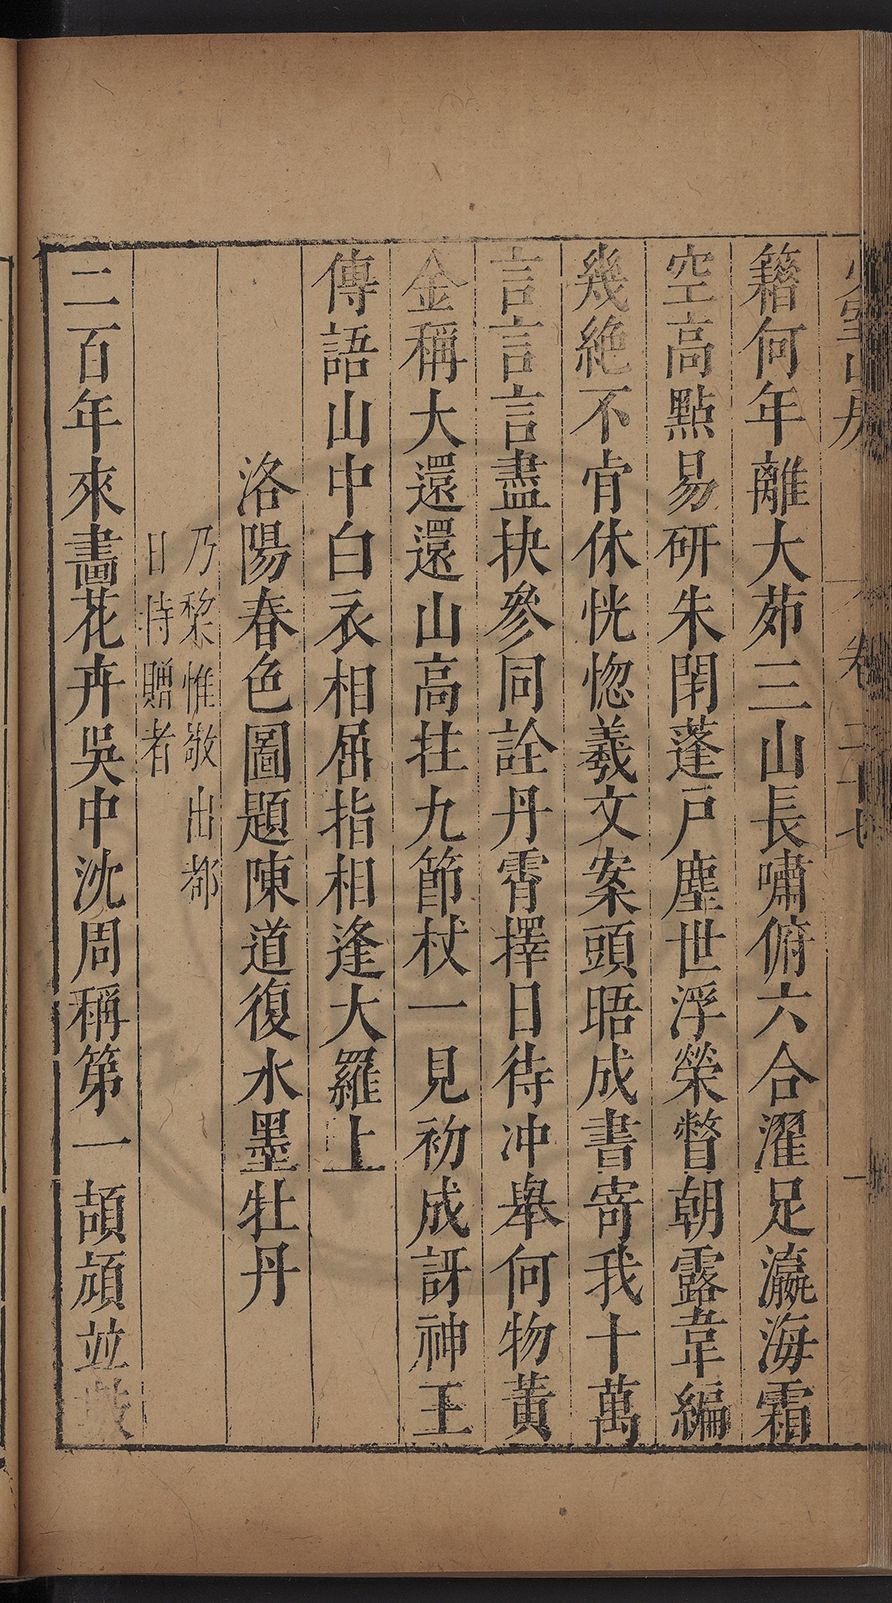 少室山房　卷二十七　一
籍何年離大茆三山長嘯俯六合濯足瀛海霜
空高點易研朱閉蓬戶塵世浮榮瞥朝露韋編
幾絶不肯休恍惚羲文案頭晤成書寄我十萬
言言言盡抉參同詮丹霄擇日待冲舉何物黃
金稱大還還山高拄九節杖一見初成訝神王
傳語山中白衣相屈指相逢大羅上
洛陽春色圖題陳道復水墨牡丹
乃黎惟敬出都
日持贈者
二百年來畵花卉吳中沈周稱第一頡頏並